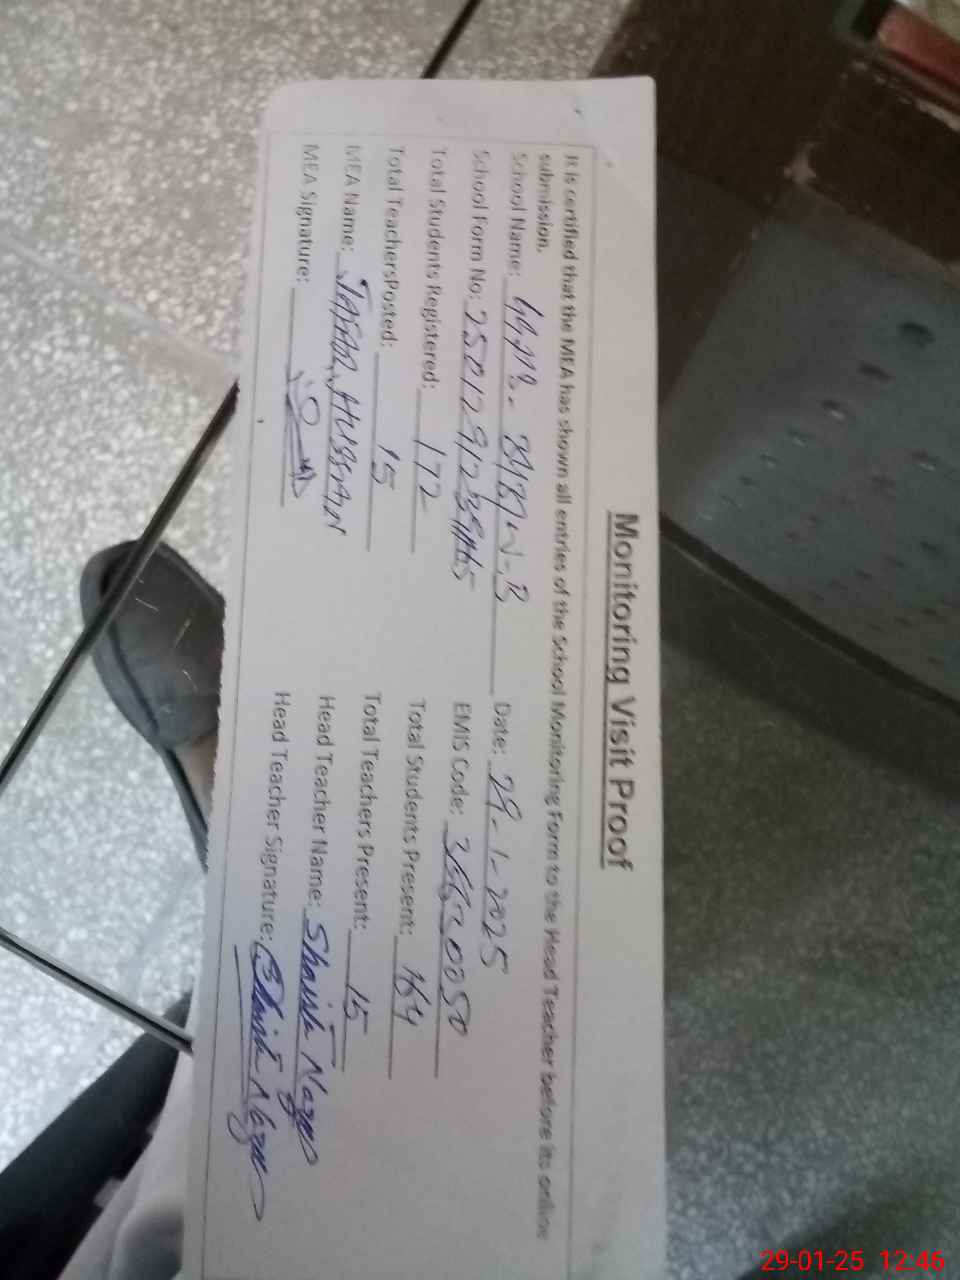 Monitoring Visit Proof
It is certified that the MEA has shown all entries of the School Monitoring Form to the Head Teacher before its online
submission.
School Name: Date: 29-1-2025
School Form No: EMIS Code:
Total Students Registered: 172 Total Students Present: 164
Total TeachersPosted: 15 Total Teachers Present: 15
MEA Name: Head Teacher Name: Shaista
MEA Signature: Head Teacher Signature: Shaista
29-01-25 12:46